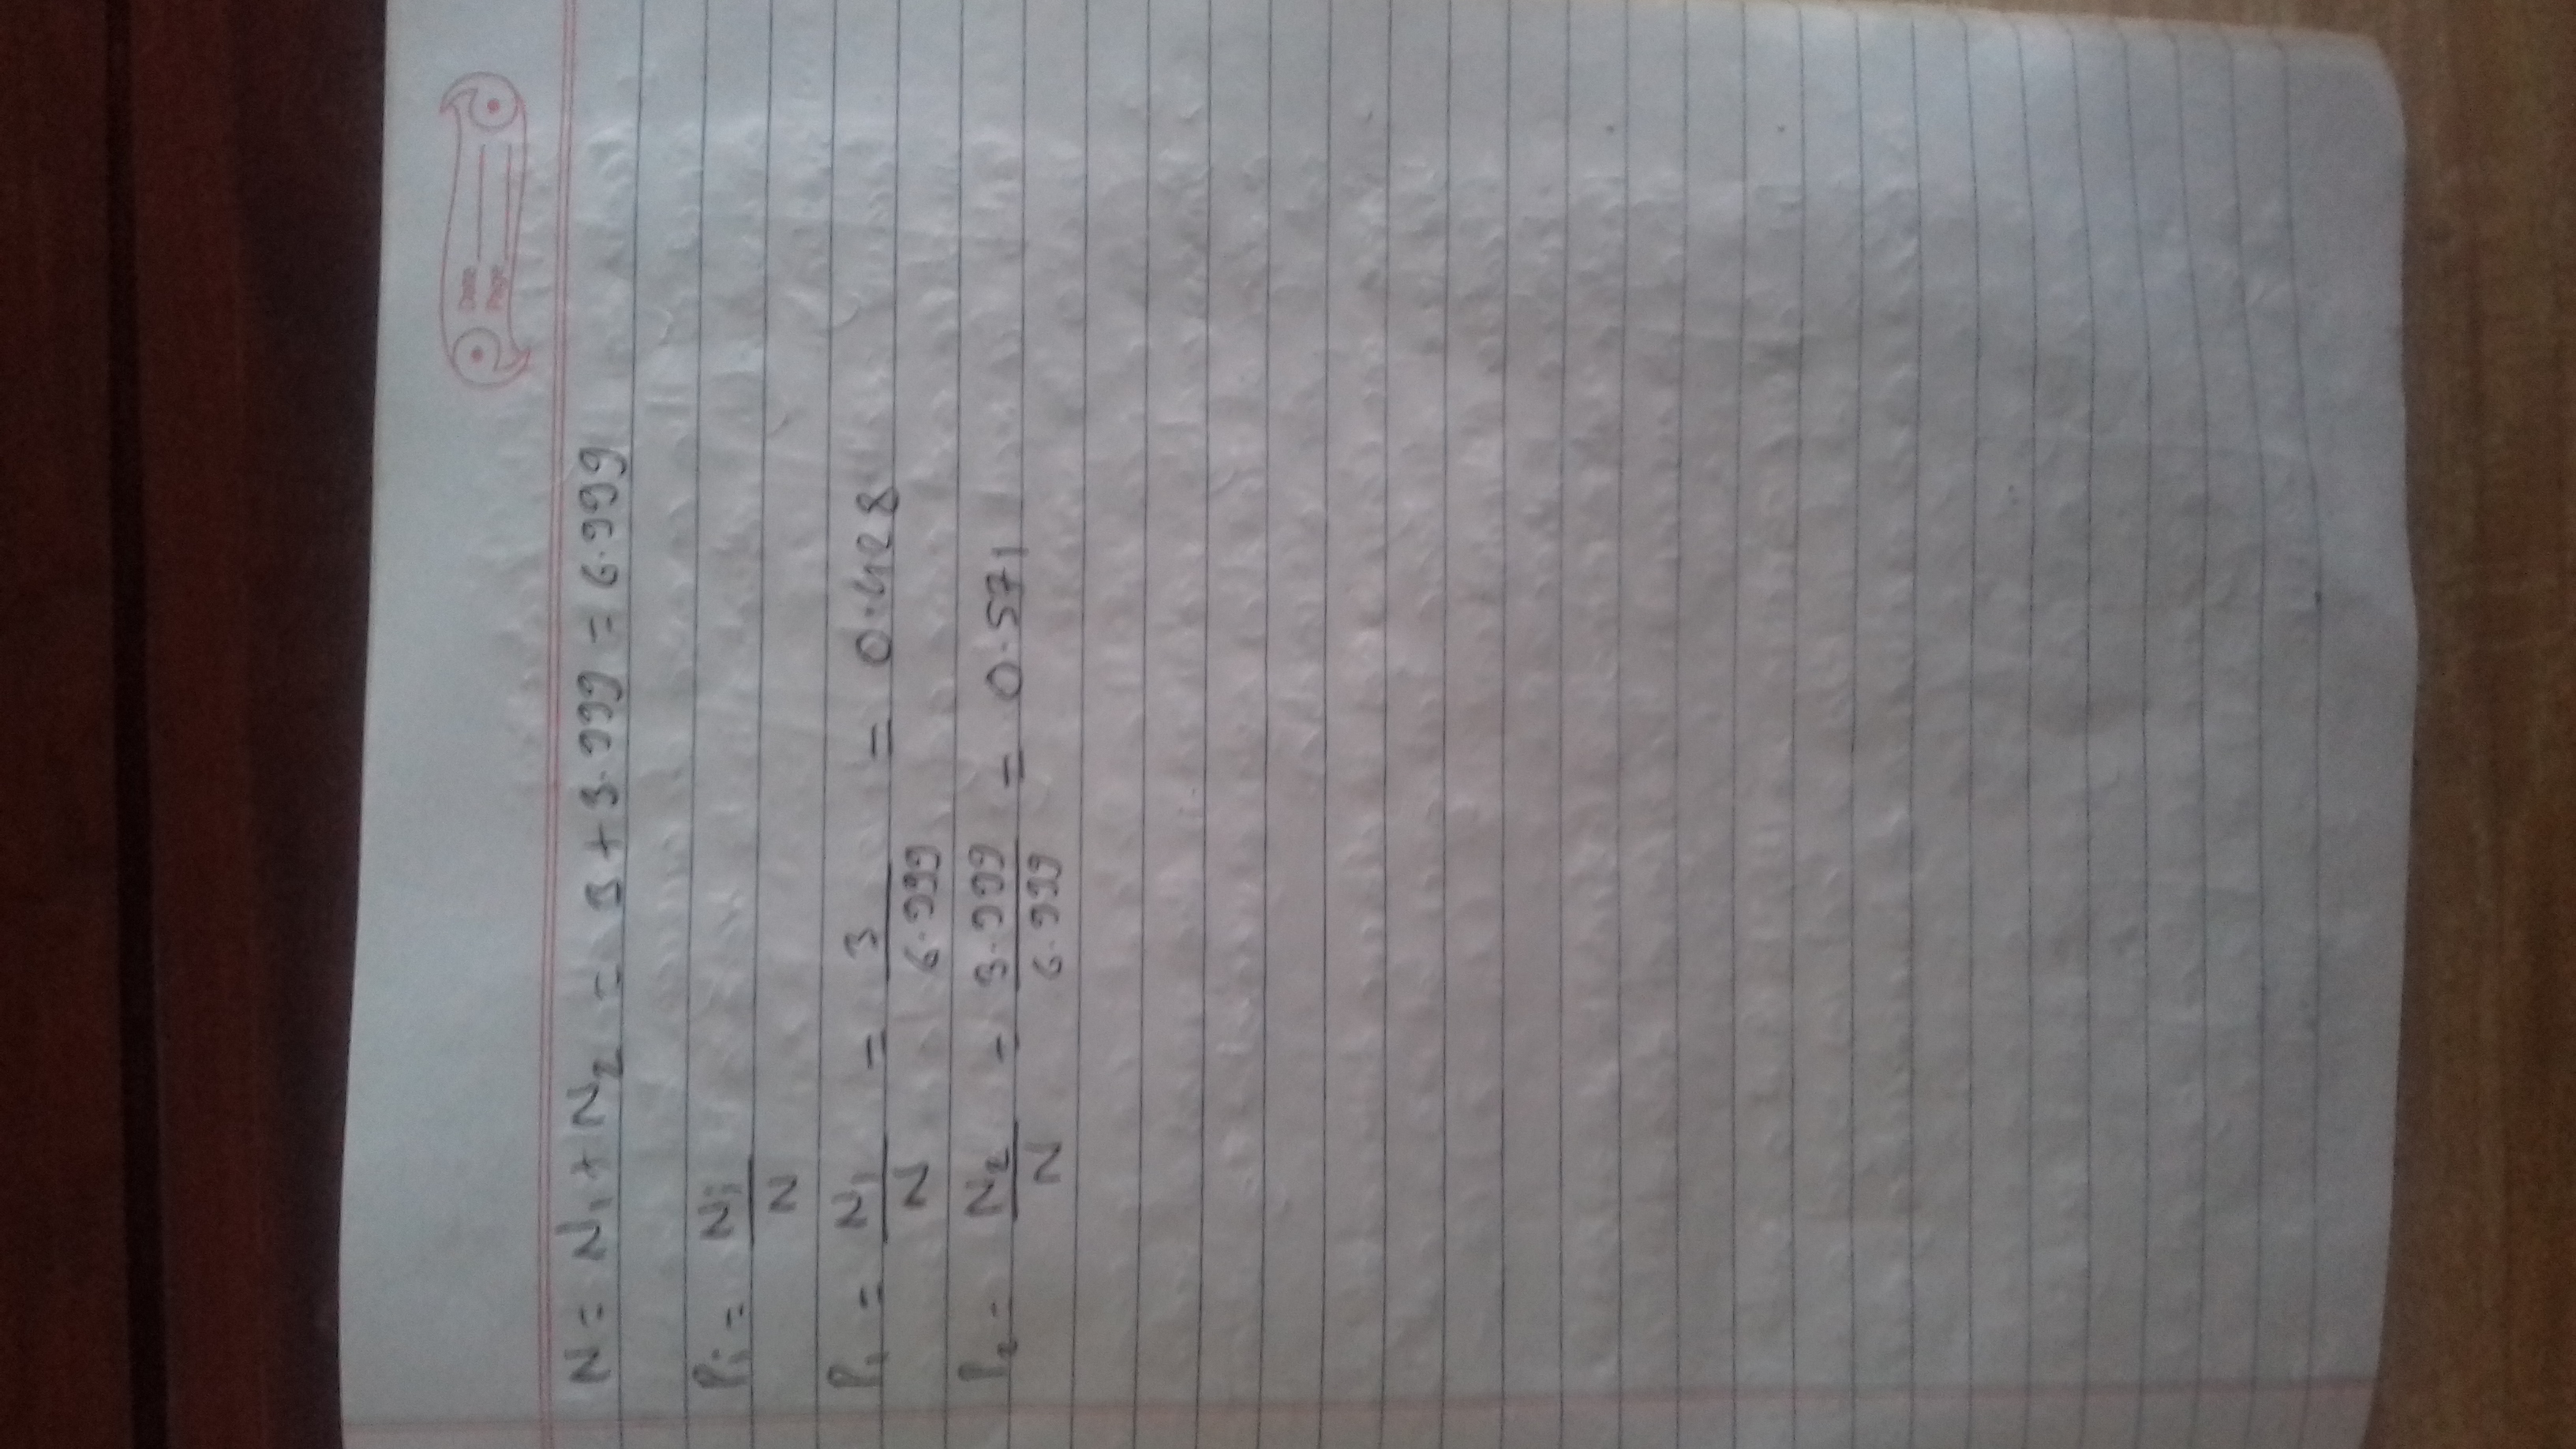 Date
Page
N = N₁ + N₂ = 3 + 3.999 = 6.999
Pᵢ = Nᵢ / N
P₁ = N₁ / N = 3 / 6.999 = 0.428
P₂ = N₂ / N = 3.999 / 6.999 = 0.571